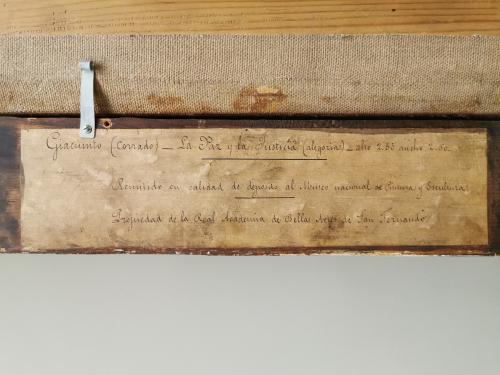 Giacuinto (Corrado) — La Paz y la Justicia (alegoria) — alto 2.35 ancho 2.30.
Remitido en calidad de deposito al Museo nacional de Pintura y Escultura
Propiedad de la Real Academia de Bellas Artes de San Fernando